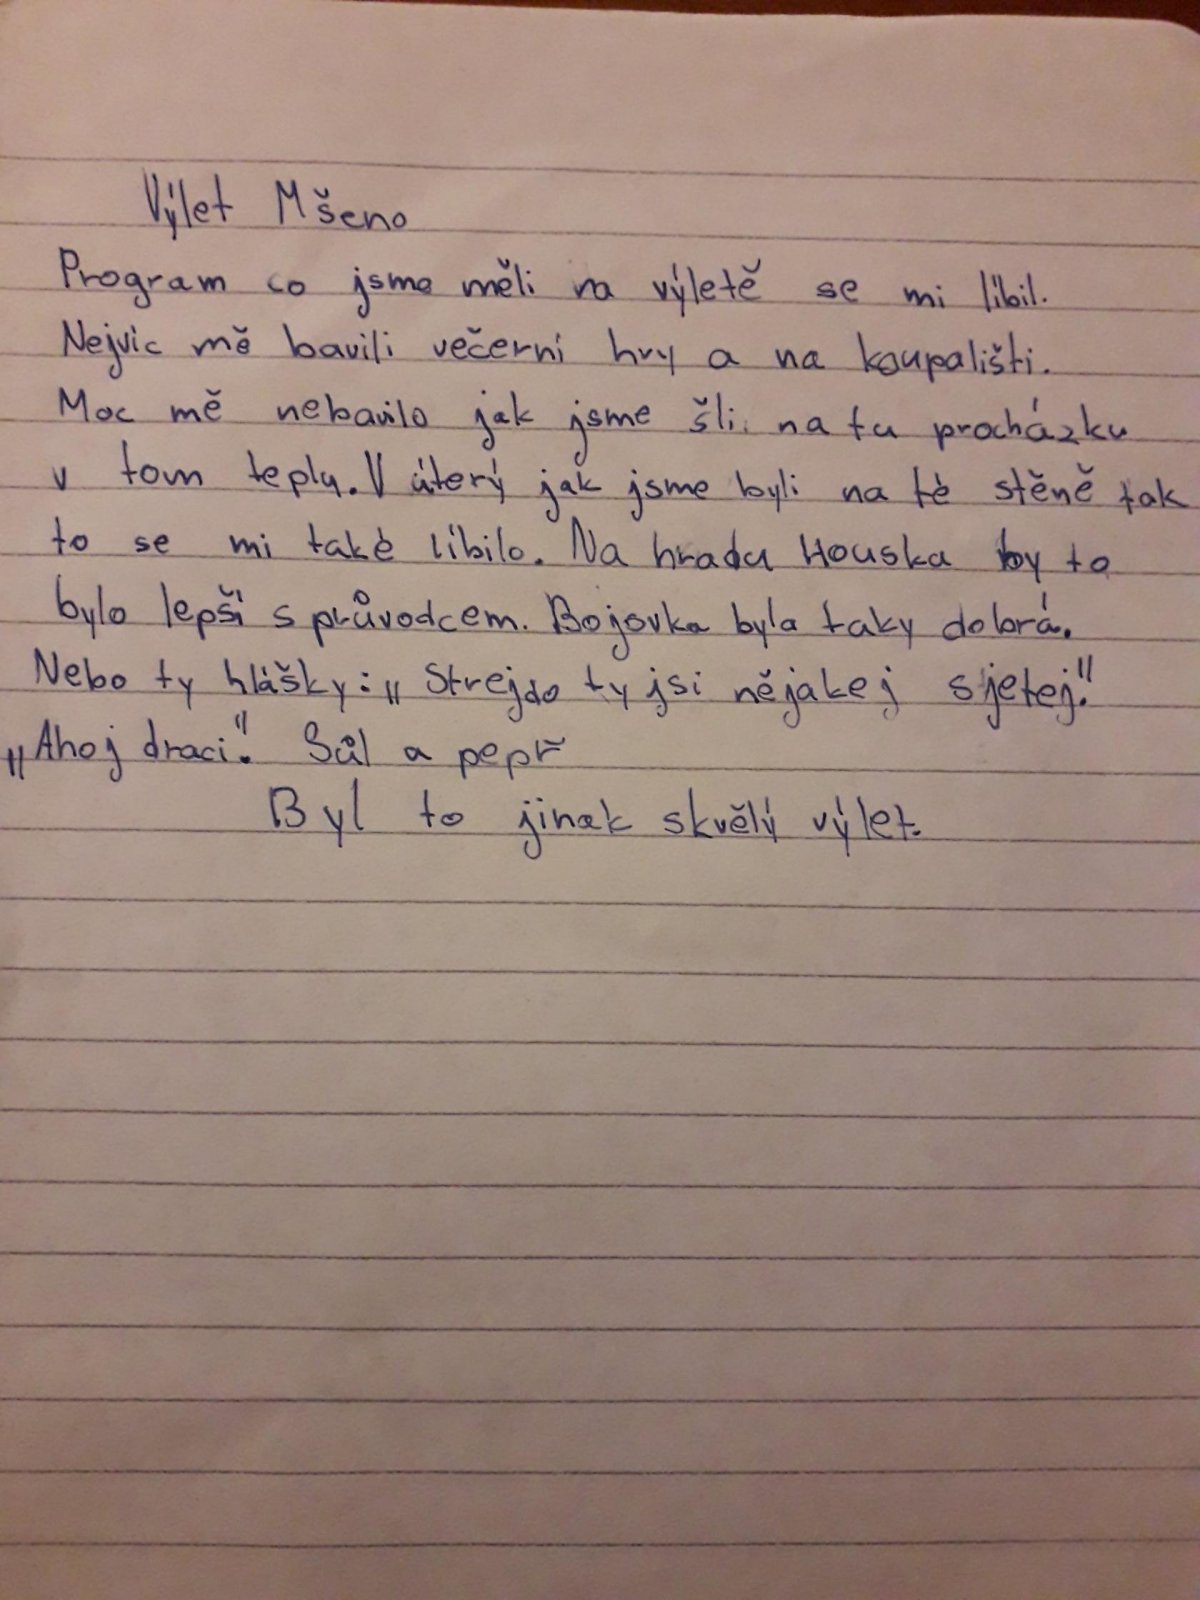 Výlet Mšeno
Program co jsme měli na výletě se mi líbil.
Nejvíc mě bavili večerní hry a na koupališti.
Moc mě nebavilo jak jsme šli na tu procházku
v tom teplu. V úterý jak jsme byli na té stěně tak
to se mi také líbilo. Na hradu Houska by to
bylo lepší s průvodcem. Bojovka byla taky dobrá.
Nebo ty hlášky: „Strejdo ty jsi nějakej sjetej."
„Ahoj draci." Sůl a pepř
Byl to jinak skvělý výlet.